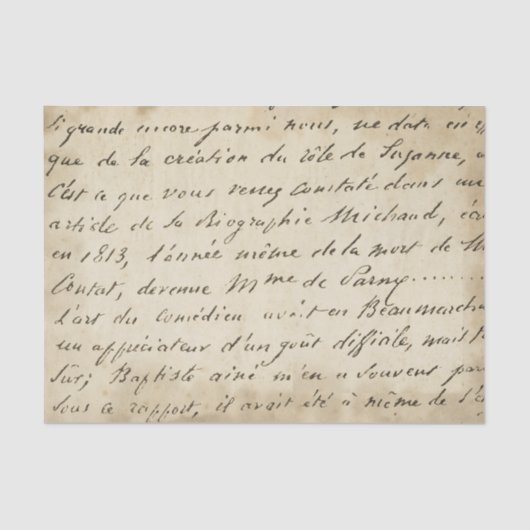 si grande encore parmi nous, ne data en eff
que de la création du rôle de Suzanne,
C'est ce que vous verrez constaté dans un
article de la Biographie Michaud, écr
en 1813, l'année même de la mort de M
Contat, devenue Mme de Parny........
L'art du comédien avait en Beaumarcha
un appréciateur d'un goût difficile, mais t
sûr; Baptiste ainé m'en a souvent par
sous ce rapport, il avait été à même de l'